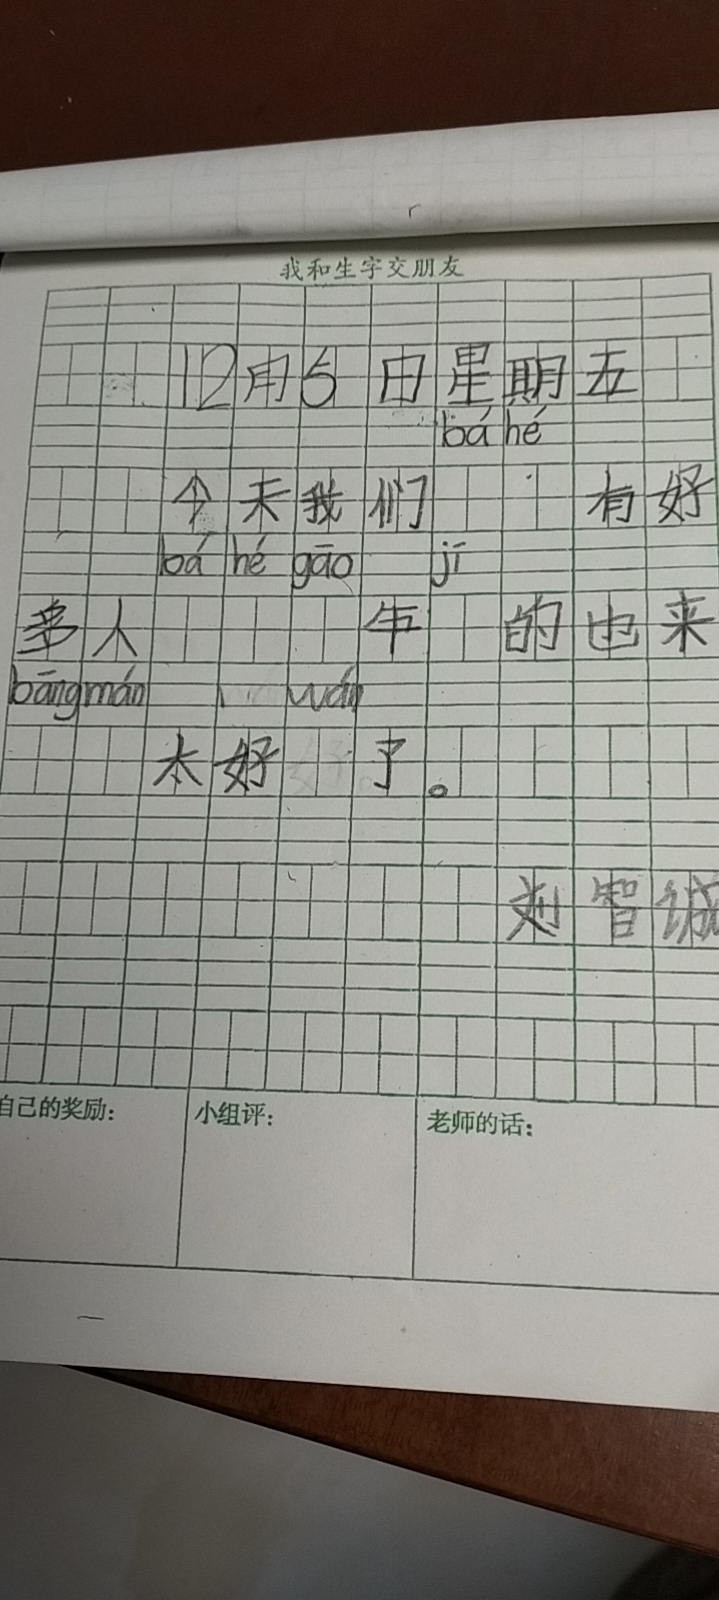 我和生字交朋友
12月5日星期五
bá hé
今天我们 有好
bá hé gāo jī
多人 年 的也来
bāng mán wán
太好 了。
刘智诚
自己的奖励：
小组评：
老师的话：